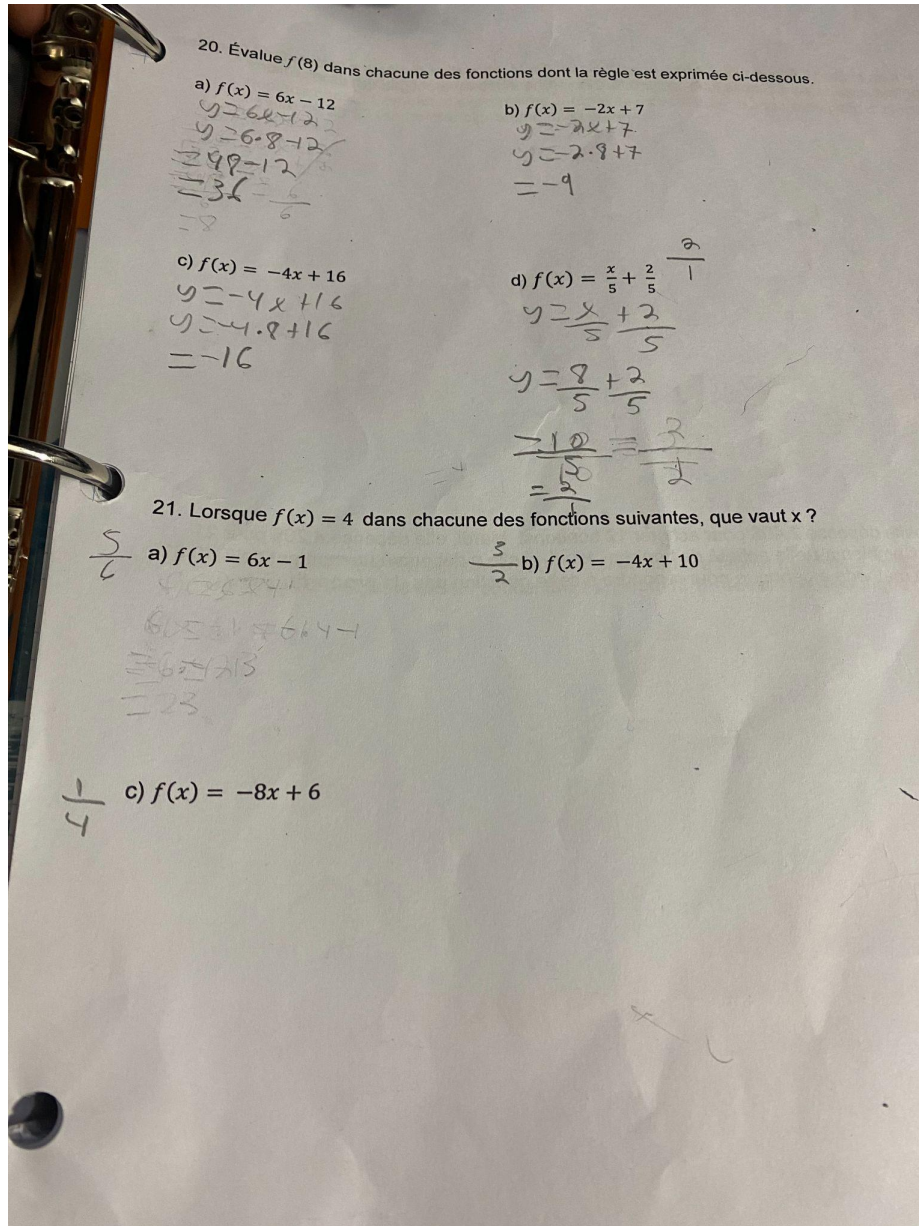 20. Évalue f(8) dans chacune des fonctions dont la règle est exprimée ci-dessous.
a) f(x) = 6x − 12
y=6x-12
y=6·8-12
=48-12
=36
=8
b) f(x) = −2x + 7
y=-2x+7
y=-2·8+7
=-9
c) f(x) = −4x + 16
y=-4x+16
y=-4·8+16
=-16
d) f(x) = x/5 + 2/5
2/1
y=x/5+2/5
y=8/5+2/5
=10/5
=2/1
21. Lorsque f(x) = 4 dans chacune des fonctions suivantes, que vaut x ?
5/6 a) f(x) = 6x − 1
=23
3/2 b) f(x) = −4x + 10
1/4 c) f(x) = −8x + 6